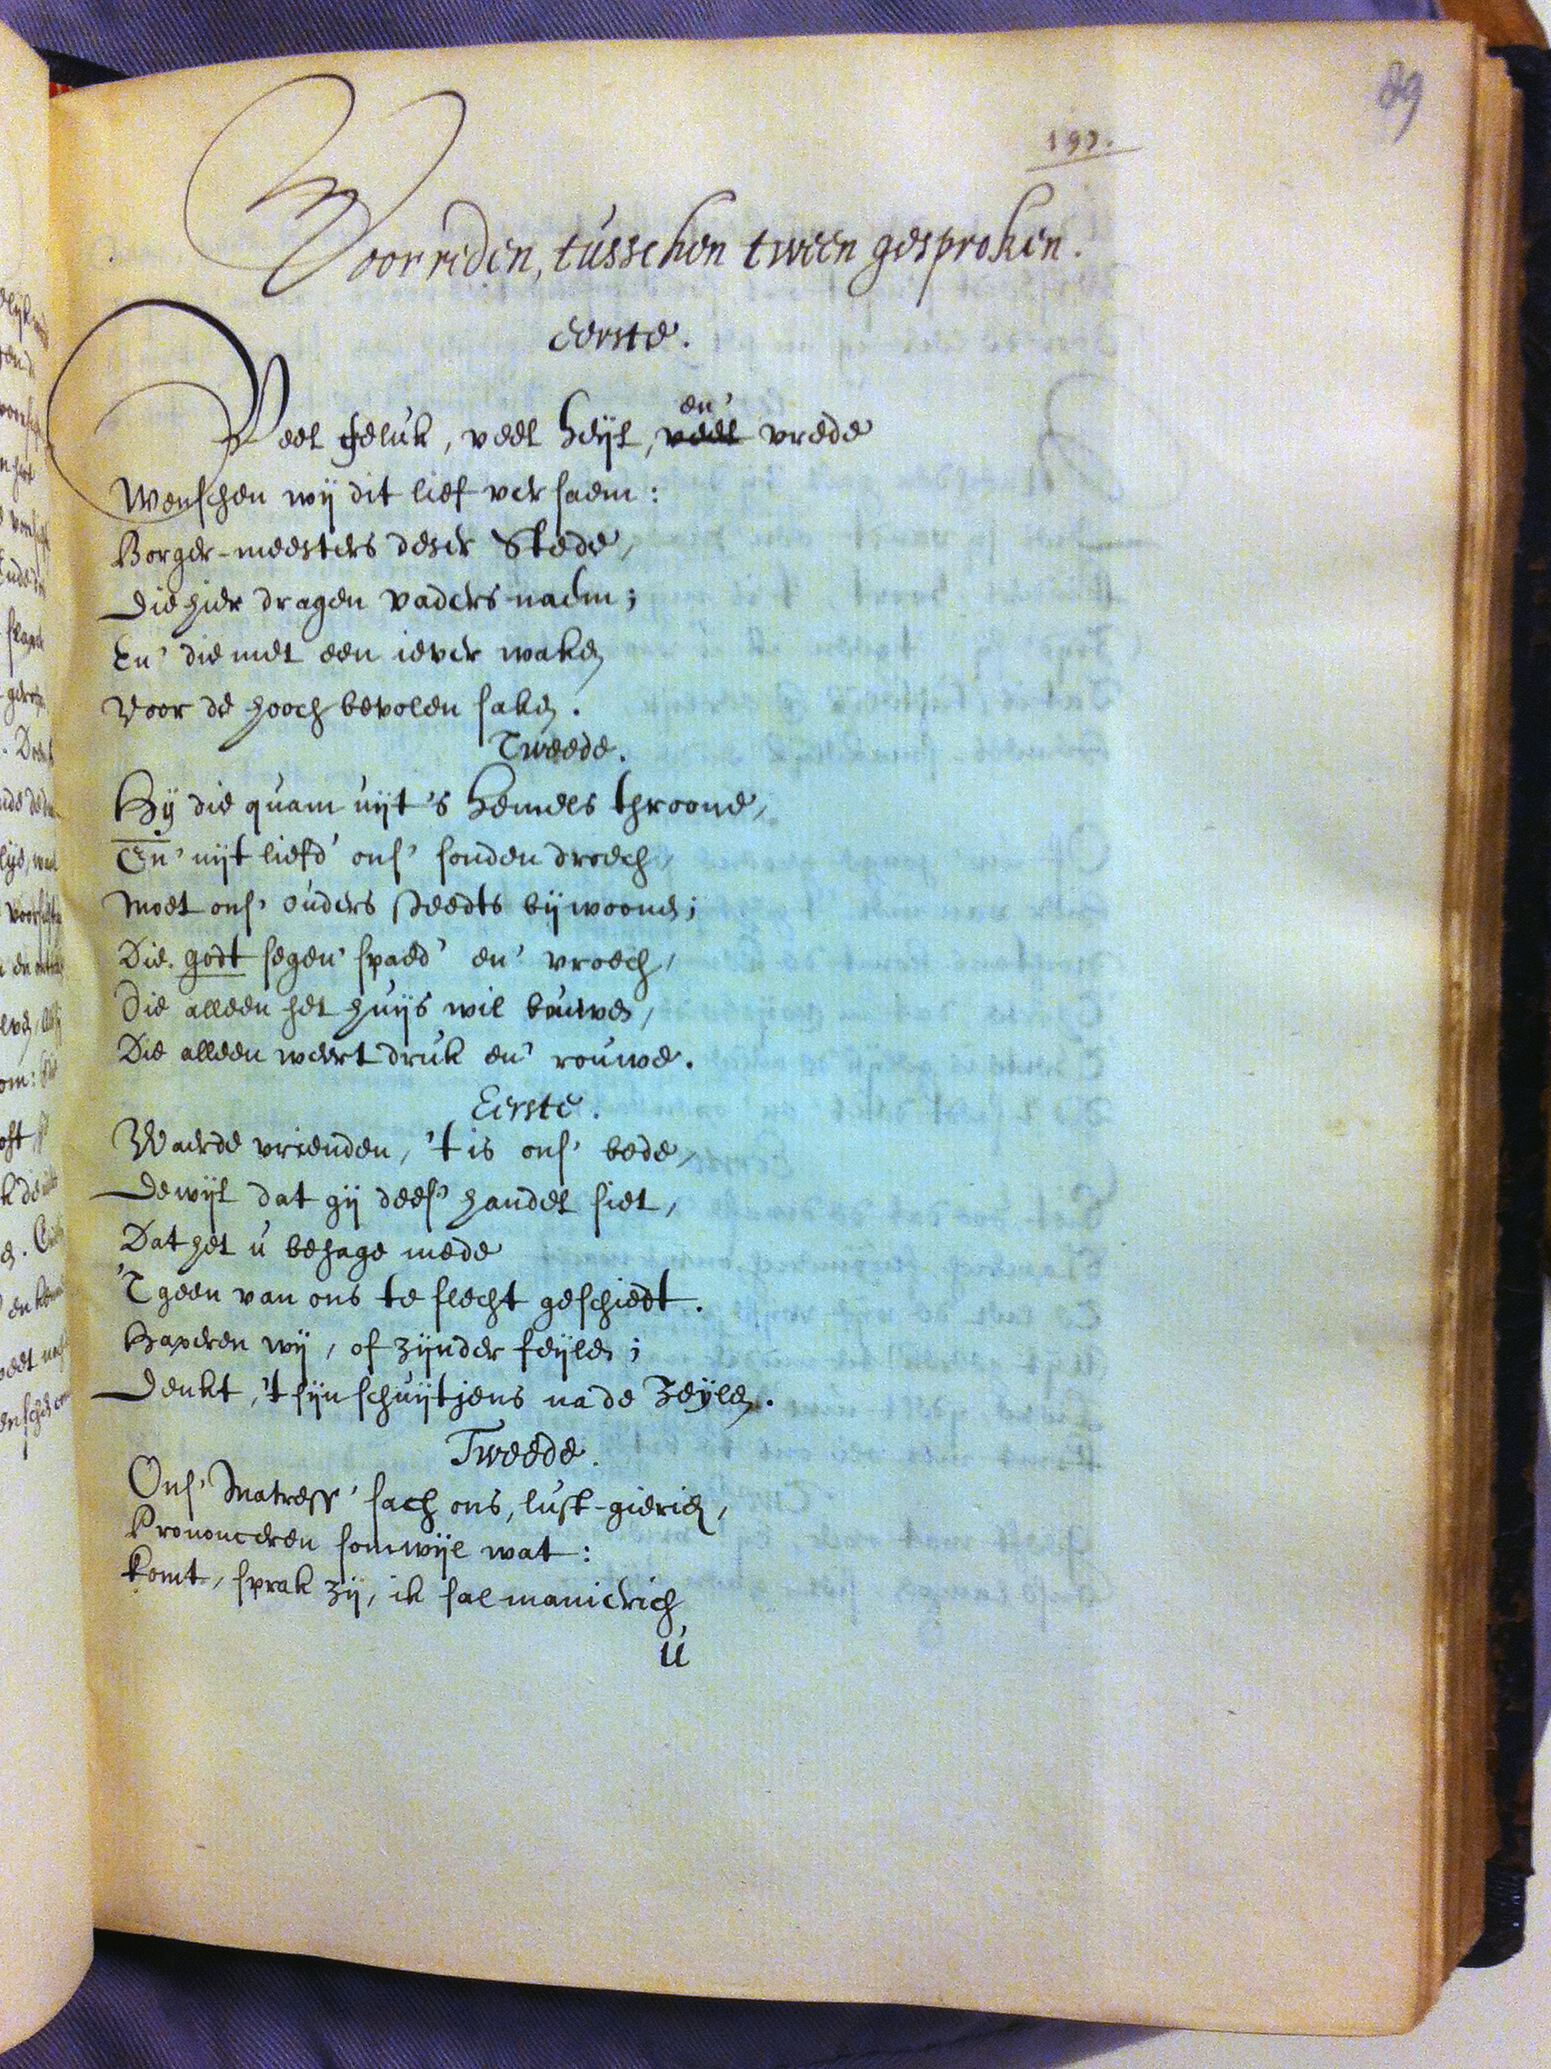 89
197.
Voorreden, tusschen tween gesproken.
Eerste.
Veel geluk, veel heijl, en' veel vrede
Wenschen wij dit lief versaem:
Borger-meesters deser Stede,
Die hier dragen vaders-naem;
En' die met een iever waken
Voor de hooch bevolen saken.
Tweede.
Hij die quam uijt 's hemels throone,
En' uijt liefd' ons' sonden droech,
Moet ons' ouders steedts bijwoonen;
Die godt segen' spaed' en' vroech,
Die alleen het huijs wil bouwen,
Die alleen weert druk en' rouwe.
Eerste.
Waerde vrienden, 't is ons' bede,
Dewijl dat gij dees' handel siet,
Dat het u behage mede
'T geen van ons te slecht geschiedt.
Haperen wij, of zijnder feijlen;
Denkt, 't sijn schuijtjens na de Zeijlen.
Tweede.
Ons' Matress' sach ons, lust-gierich,
Prononceren somwijl wat:
Komt, sprak zij, ik sal manierich
U